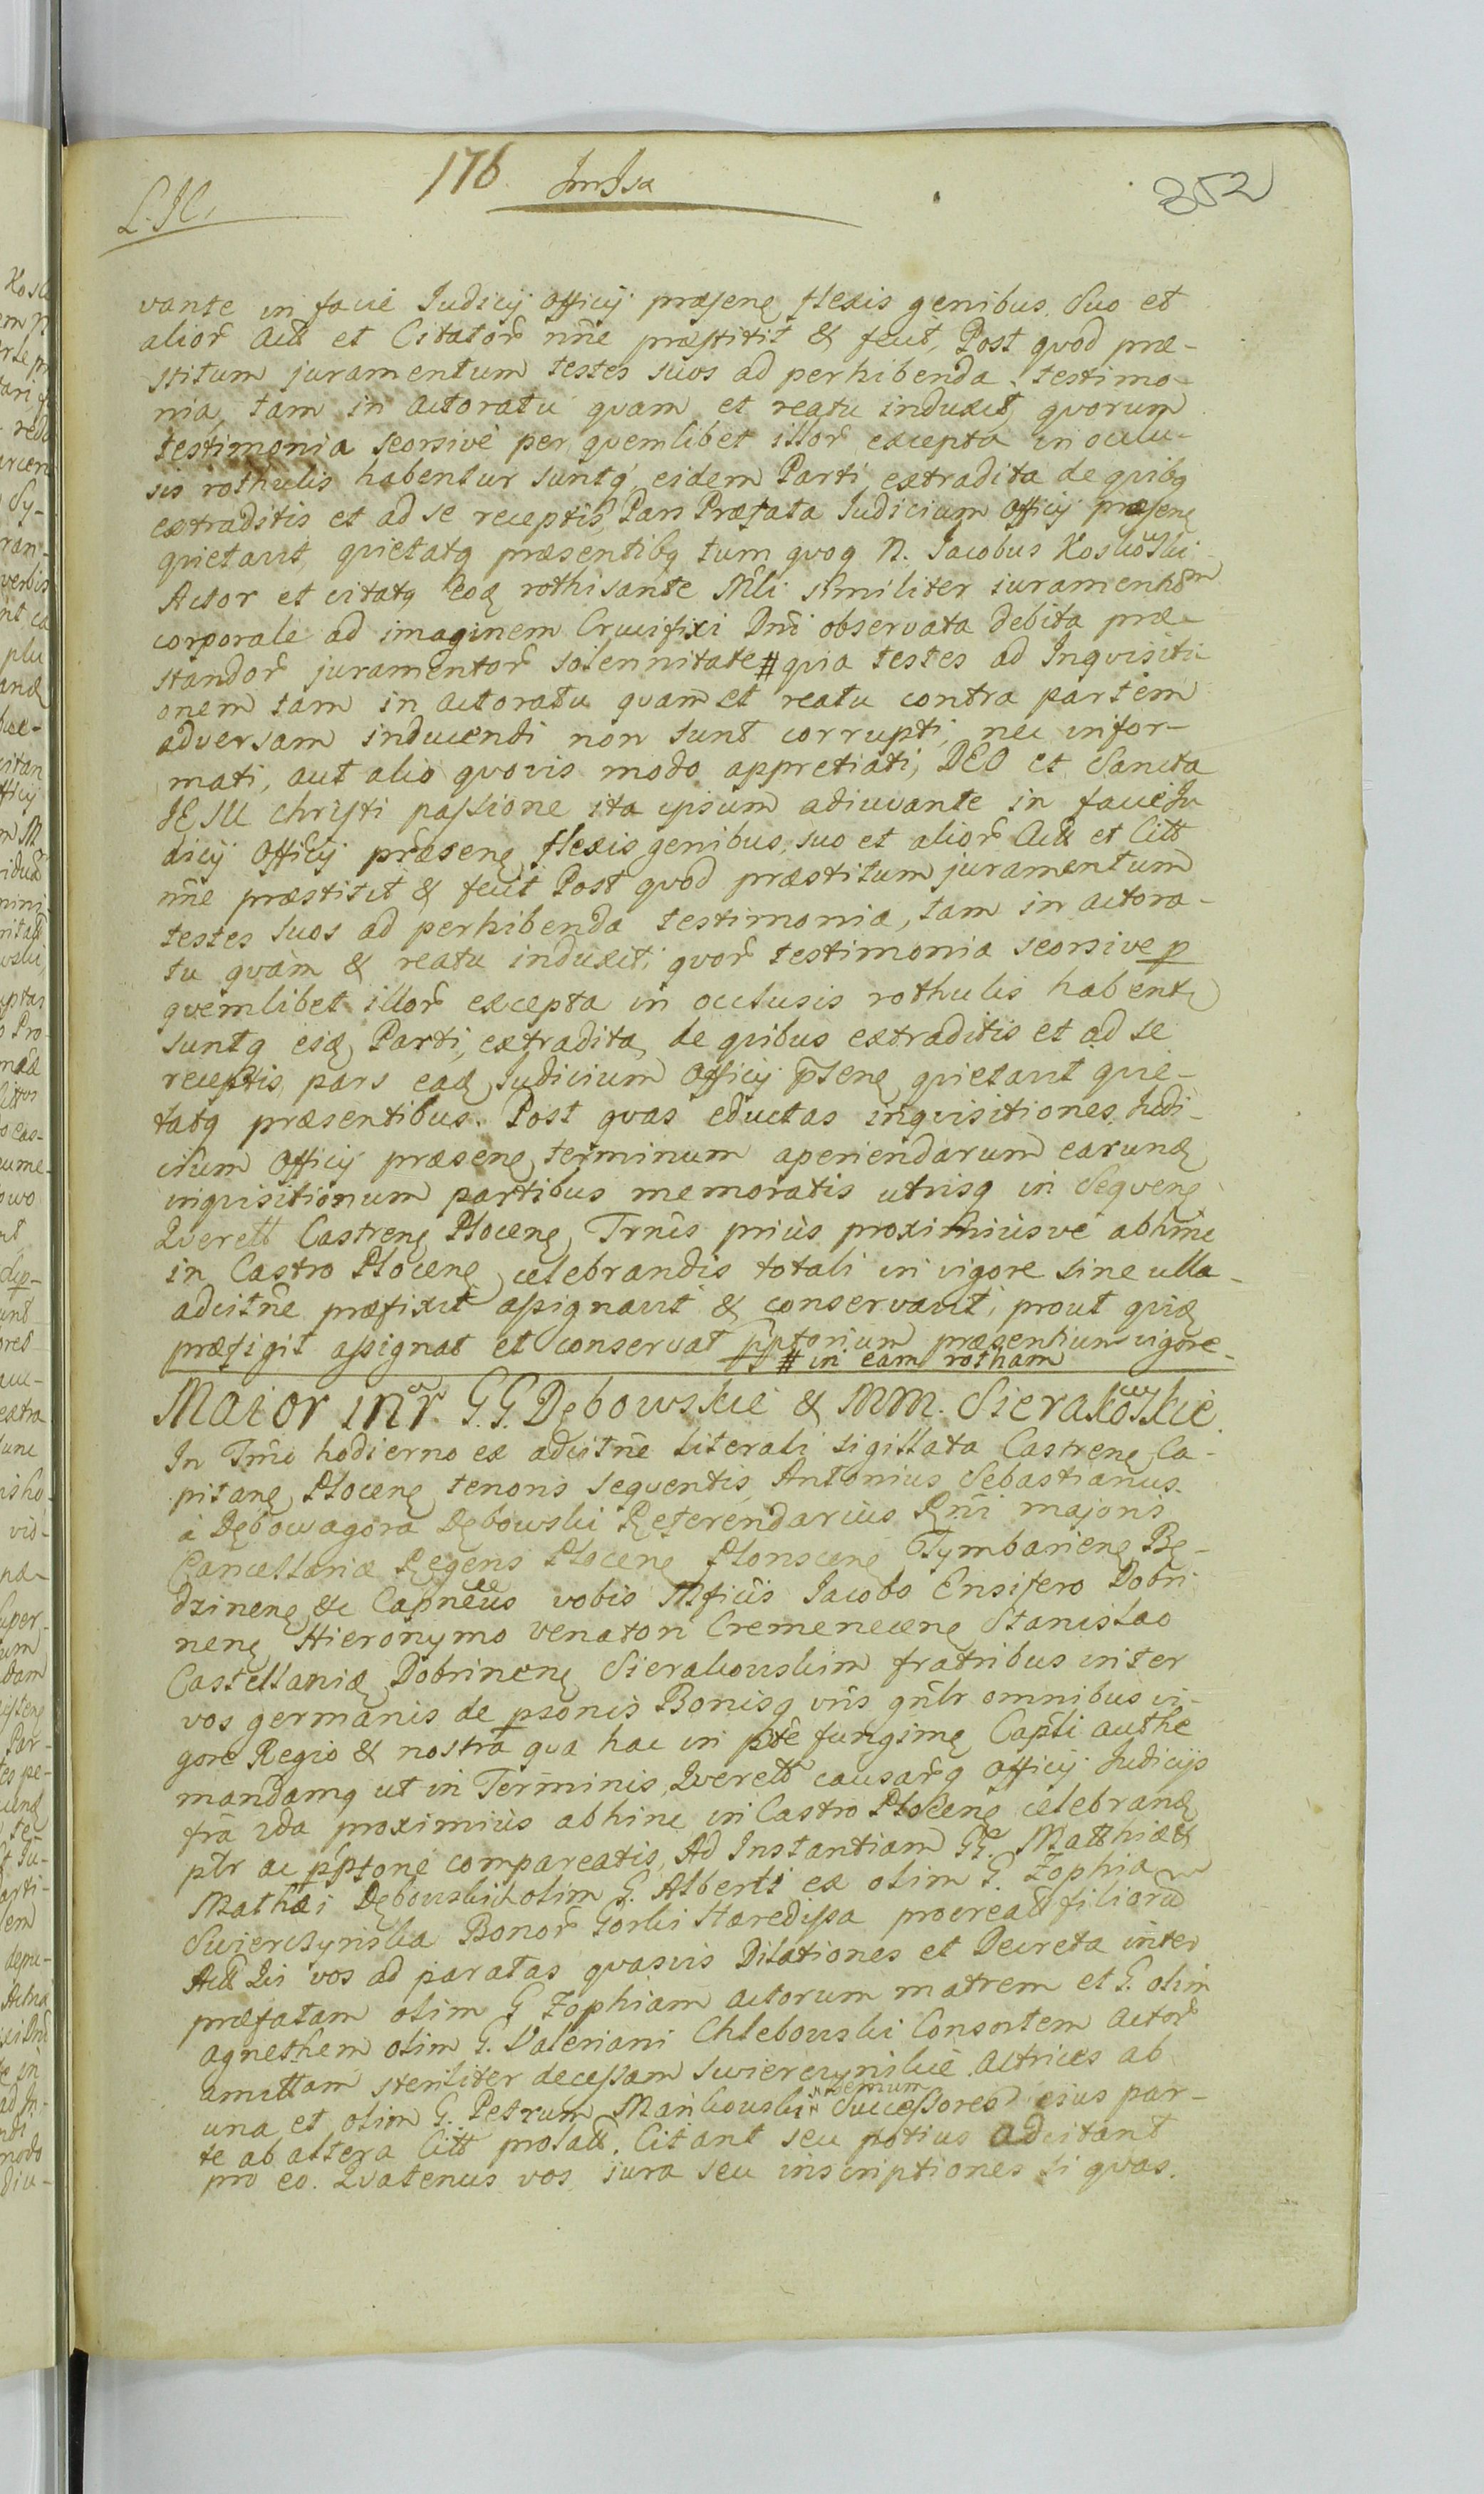 176. 
352
vante in facie Judicij Officij præsenę flexis genibus. Suo et
alior Actt et Citator nñe præstitit & fecit, Post quod præ-
stitum juramentum testes suos ad perhibenda testimo-
nia, tam in actoratu quam et reatu induxit, quorum
testimonia seorsivè per quemlibet illor excepta in occlu-
sis rothulis habentur suntq, eidem Parti extradita de quibq
extraditis et ad se receptis, Pars Præfata Judicium Officij præsenę
quietavit, quietatq præsentibq tum quoq N. Jacobus Koskowski
Actor et citatq eoę rothisante Mli similiter iuramentum
corporale ad imaginem Crucifixi Dni observata debita præ-
standor juramentor solennitate # quia testes ad Inquisiti-
onem tam in actoratu quam et reatu contra partem
adversam inducendi non sunt corrupti, nec infor-
mati, aut alio quovis modo appretiati, DEO et Sancta
JESU Christi passione ita ipsum adiuvante in facie Ju
dicij Officij præsenę flexis genibus, suo et alior Actt et Citt
nñe præstitit & fecit Post quod præstitum juramentum
testes suos ad perhibenda testimonia, tam in actora-
tu quàm & reatu induxit, quor testimonia seorsive p
quemlibet illor excepta in occlusis rothulis habentr
suntq eiđ Parti, extradita, de quibus extraditis et ad se
receptis, pars eađ Judicium Officij pñsenę quietavit quie-
tatq præsentibus. Post quas eductas inquisitiones, Judi-
cium Officij præsenę terminum aperiendarum earunđ
inquisitionum partibus memoratis utrisq in Sequenę
Querett Castrenę Plocenę, Trñis priùs proximiùsvè abhinc
in Castro Plocenę celebrandis totali in vigore sine ulla
adcitñe præfixit assignavit & conservavit, prout quiđ
præfigit assignat et conservat pptorium præsentium vigore.
# in eam rotham
Maior inr. G.G. Dębowskie & MM. Sierakowskie.
In Tmô hodierno ex adcitñe literali sigillata Castrenę Ca-
pitanę Plocenę tenoris sequentis, Antonius Sebastianus
à Dębowagora Dębowski Referendarius Rñi majoris
Cancellariæ Regens Plocenę Plonscenę Tymbarienę Bę-
dzinenę &c Capneus vobis Mficis Jacobo Ensifero Dobri
nenę Hieronymo Venatori Cremenecenę Stanislao
Castellaniđ Dobrinenę Sierakowskim fratribus inter
vos germanis de psonis Bonisq vris gnlr omnibus vi-
gore Regio & nostrâ qua hac in pte fungimę Capli authe
mandamq ut in Terminis, Querett causarq Officij Judicijs
frâ 2da proximiùs abhinc in Castro Plocenę celebranđ
ptr ac pptonè compareatis, Ad Instantiam GG. Matthiæ &
Mathæi Dębowskich olim G. Alberti ex olim G. Zophia
Swierczynska Bonor Gorki Hæredissa procreatt filiorum
Actt Qui vos ad paratas quasvis Dilationes et Decreta inter
præfatam olim G Zophiam actorum matrem et G. olim
Agnethem olim G. Valeriani Chlebowski Consortem actor
amittam steriliter decessam Swierczynskie actrices ab
una et olim G. Petrum Mankowski Successores ejus par-
te ab altera Citt prolatt. Citant seu potius adcitant
pro eo. Quatenus vos jura seu inscriptiones si quas.